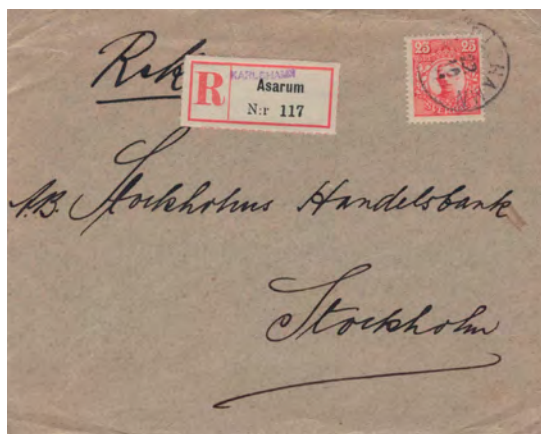 Rek
R
KARLSHAMN
Asarum
N:r 117
25 25
SVERIGE
A.B. Stockholms Handelsbank
Stockholm